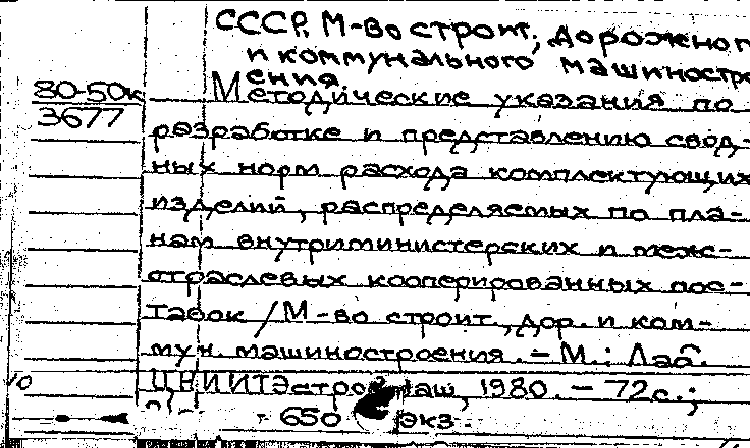 СССР. М-во строит., дорожног
и коммунального машиностро
ения
80-50к
3677
Методические указания по
разработке и представлению свод-
ных норм расхода комплектующих
изделий, распределяемых по пла-
нам внутриминистерских и меж-
отраслевых кооперированных пос-
тавок / М-во строит., дор. и ком-
мун. машиностроения. – М.: Лаб.
10
ЦНИИТЭстроймаш, 1980. – 72с.;
650 экз.